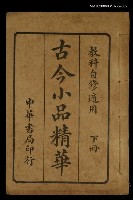 教科自修適用
下冊
古今小品精華
中華書局印行